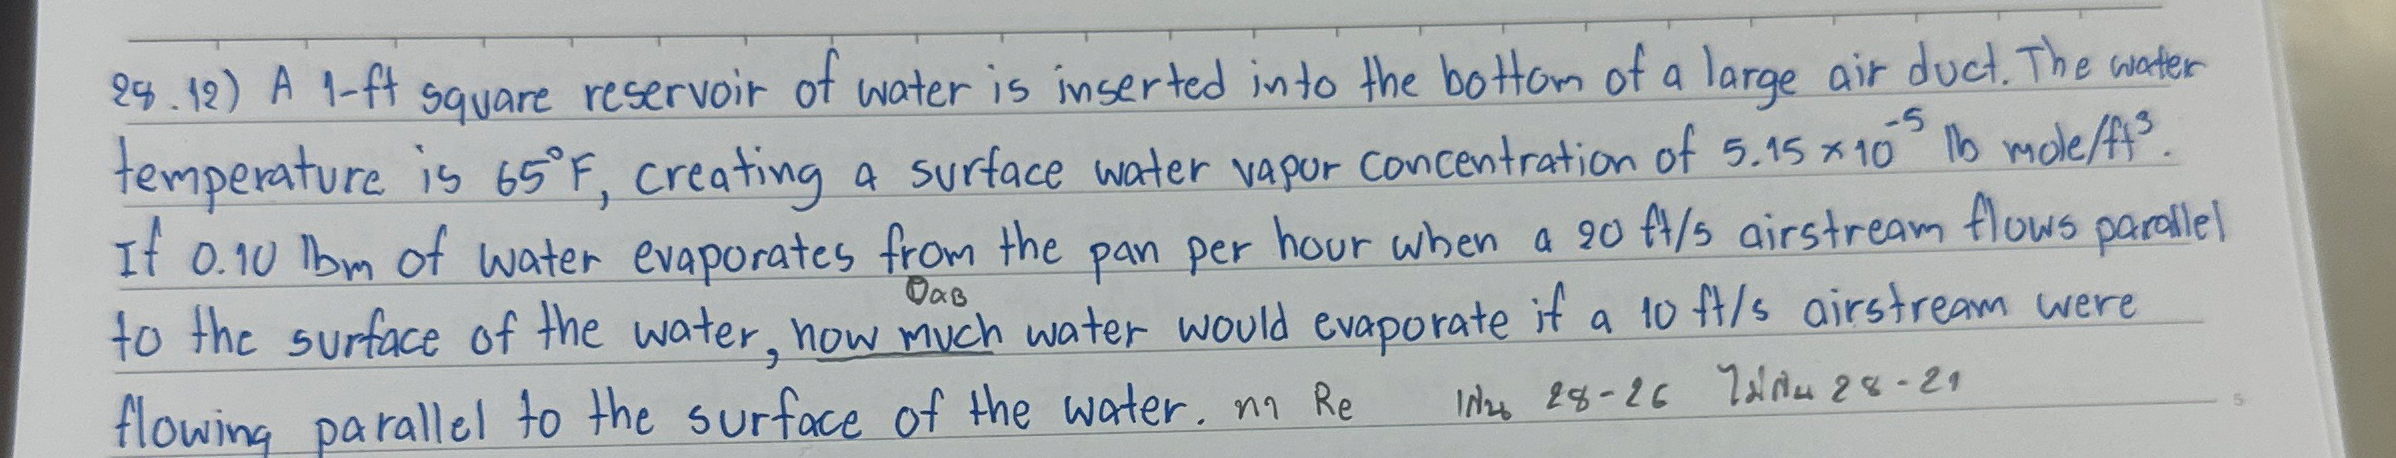 28.12) A 1-ft square reservoir of water is inserted into the bottom of a large air duct. The water
temperature is 65°F, creating a surface water vapor concentration of 5.15 × 10⁻⁵ lb mole/ft³.
If 0.10 lbm of water evaporates from the pan per hour when a 20 ft/s airstream flows parallel
DAB
to the surface of the water, how much water would evaporate if a 10 ft/s airstream were
flowing parallel to the surface of the water. หา Re 28-26 28-21
5